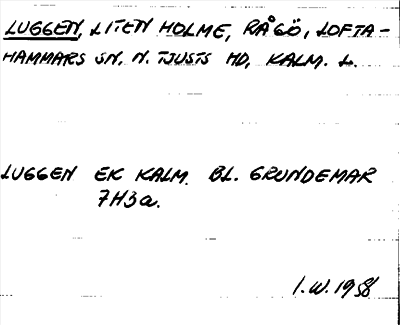 LUGGEN, LITEN HOLME, RÅGÖ, LOFTA-
HAMMARS SN, N. TJUSTS HD, KALM. L.
LUGGEN EK KALM. BL. GRUNDEMAR
7H3a.
I.W. 1958